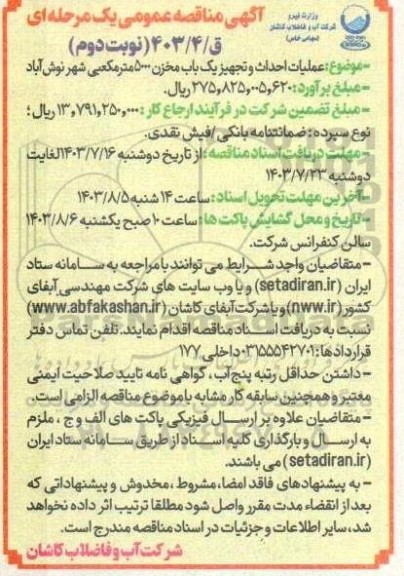 وزارت نیرو
شرکت آب و فاضلاب کاشان
(سهامی خاص)
آگهی مناقصه عمومی یک مرحله ای
ق/۴۰۳/۴ (نوبت دوم)
-موضوع: عملیات احداث و تجهیز یک باب مخزن ۵۰۰۰ مترمکعبی شهر نوش آباد
- مبلغ برآورد: ۲۷۵,۸۲۵,۰۰۵,۶۲۰ ریال.
- مبلغ تضمین شرکت در فرآیند ارجاع کار: ۱۳,۷۹۱,۲۵۰,۰۰۰ ریال؛
نوع سپرده: ضمانتنامه بانکی/فیش نقدی.
- مهلت دریافت اسناد مناقصه: از تاریخ دوشنبه ۱۴۰۳/۷/۱۶ لغایت
دوشنبه ۱۴۰۳/۷/۲۳
-آخرین مهلت تحویل اسناد: ساعت ۱۴ شنبه ۱۴۰۳/۸/۵
- تاریخ و محل گشایش پاکت ها: ساعت ۱۰ صبح یکشنبه ۱۴۰۳/۸/۶
سالن کنفرانس شرکت.
- متقاضیان واجد شرایط می توانند با مراجعه به سامانه ستاد
ایران (setadiran.ir) و یا وب سایت های شرکت مهندسی آبفای
کشور (nww.ir) و یا شرکت آبفای کاشان (www.abfakashan.ir)
نسبت به دریافت اسناد مناقصه اقدام نمایند. تلفن تماس دفتر
قراردادها: ۰۳۱۵۵۵۴۲۷۰۱ داخلی ۱۷۷
- داشتن حداقل رتبه پنج آب، گواهی نامه تایید صلاحیت ایمنی
معتبر و همچنین سابقه کار مشابه با موضوع مناقصه الزامی است.
- متقاضیان علاوه بر ارسال فیزیکی پاکت های الف و ج، ملزم
به ارسال و بارگذاری کلیه اسناد از طریق سامانه ستاد ایران
(setadiran.ir) می باشند.
- به پیشنهادهای فاقد امضا، مشروط، مخدوش و پیشنهاداتی که
بعد از انقضاء مدت مقرر واصل شود مطلقا ترتیب اثر داده نخواهد
شد، سایر اطلاعات و جزئیات در اسناد مناقصه مندرج است.
شرکت آب و فاضلاب کاشان